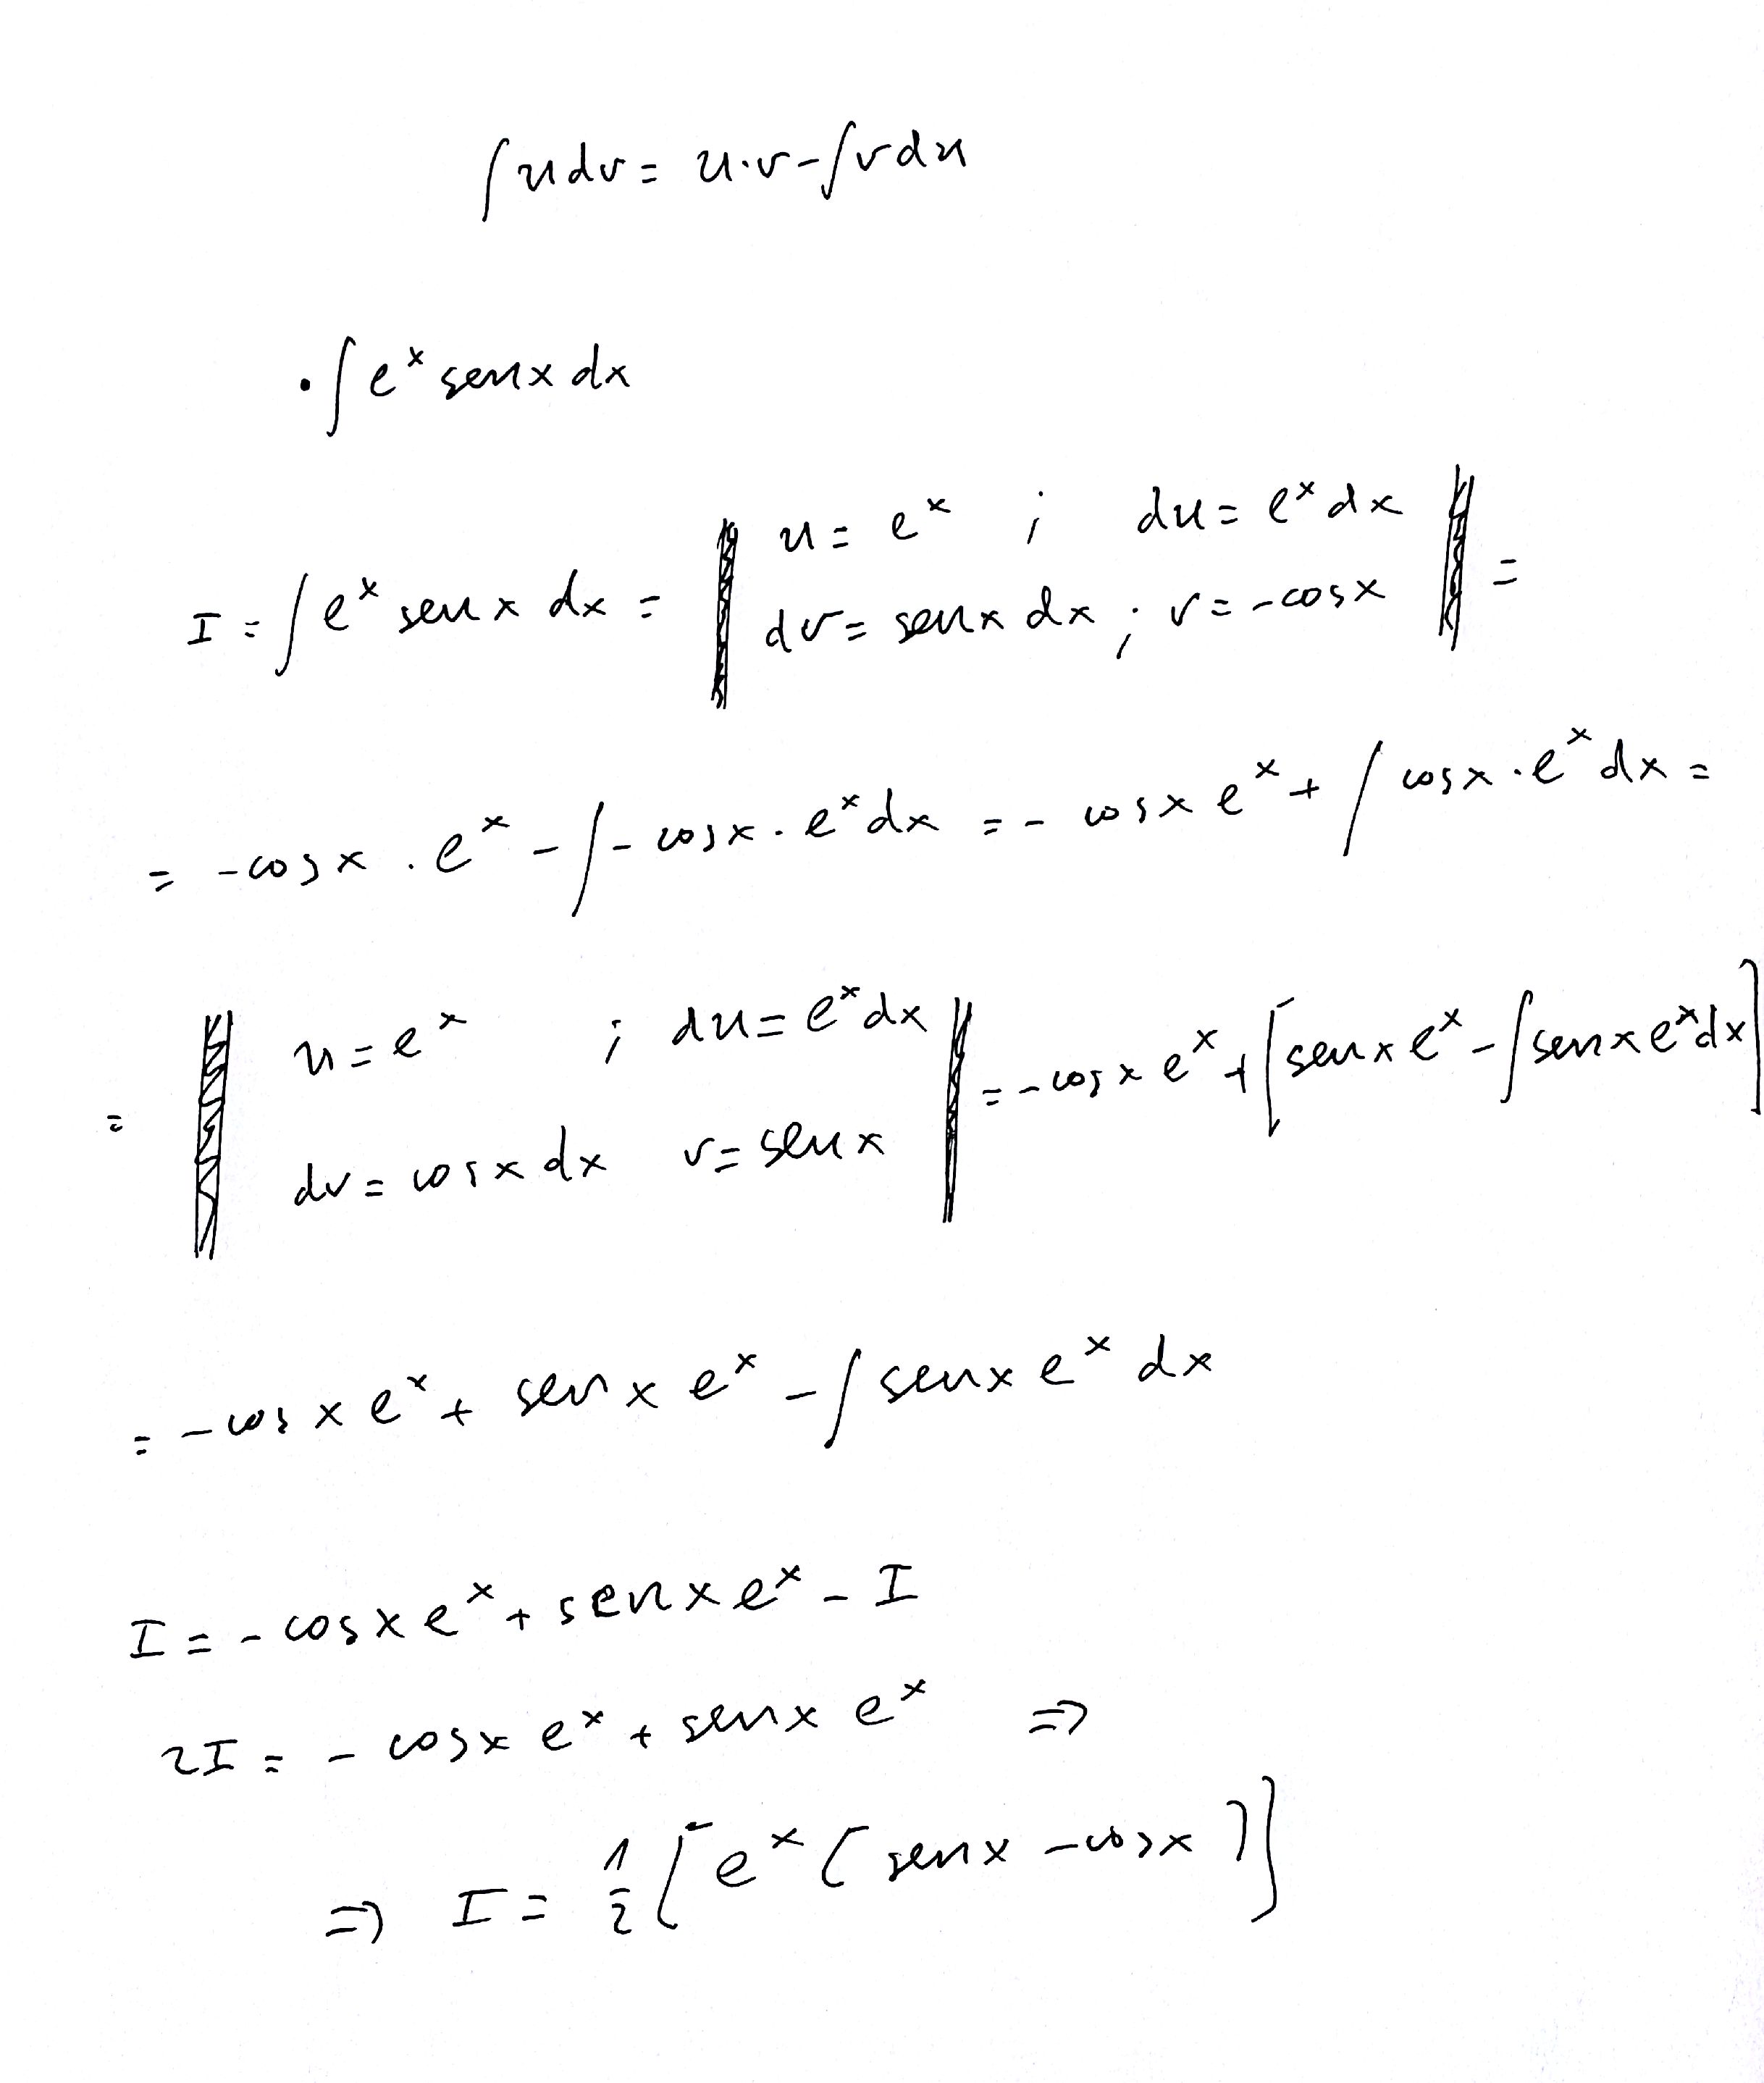 ∫udv = u·v-∫vdu
·∫eˣ senx dx
I = ∫eˣ senx dx = ‖ u = eˣ ; du = eˣ dx
dv = senx dx ; v = -cosx ‖ =
= -cosx · eˣ - ∫-cosx · eˣ dx = - cosx eˣ + ∫ cosx · eˣ dx =
= ‖ u = eˣ ; du = eˣ dx
dv = cosx dx v = senx ‖ = - cosx eˣ + [senx eˣ - ∫senx eˣ dx]
= - cosx eˣ + senx eˣ - ∫ senx eˣ dx
I = - cosx eˣ + senx eˣ - I
2I = - cosx eˣ + senx eˣ ⇒
⇒ I = 1/2 [eˣ (senx - cosx)]